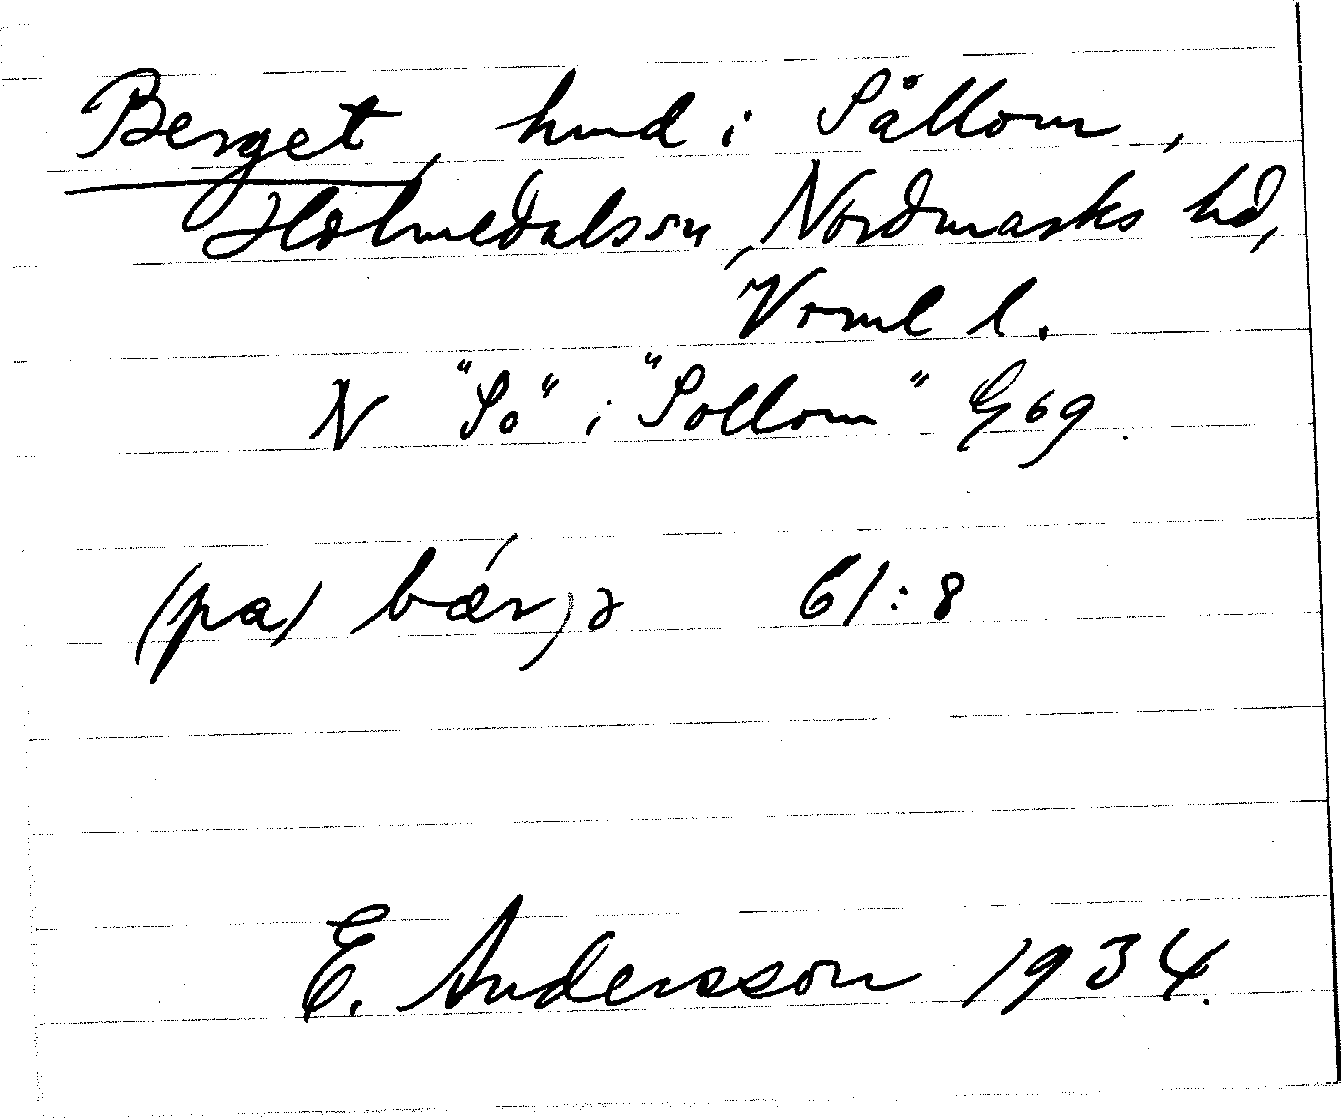 Berget, hmd i Sållom,
Holmedals sn, Nordmarks hd,
Vrml l.
N "So" i "Sollom" G 69.
(pa) bǽr,ə 61:8
E. Andersson 1934.